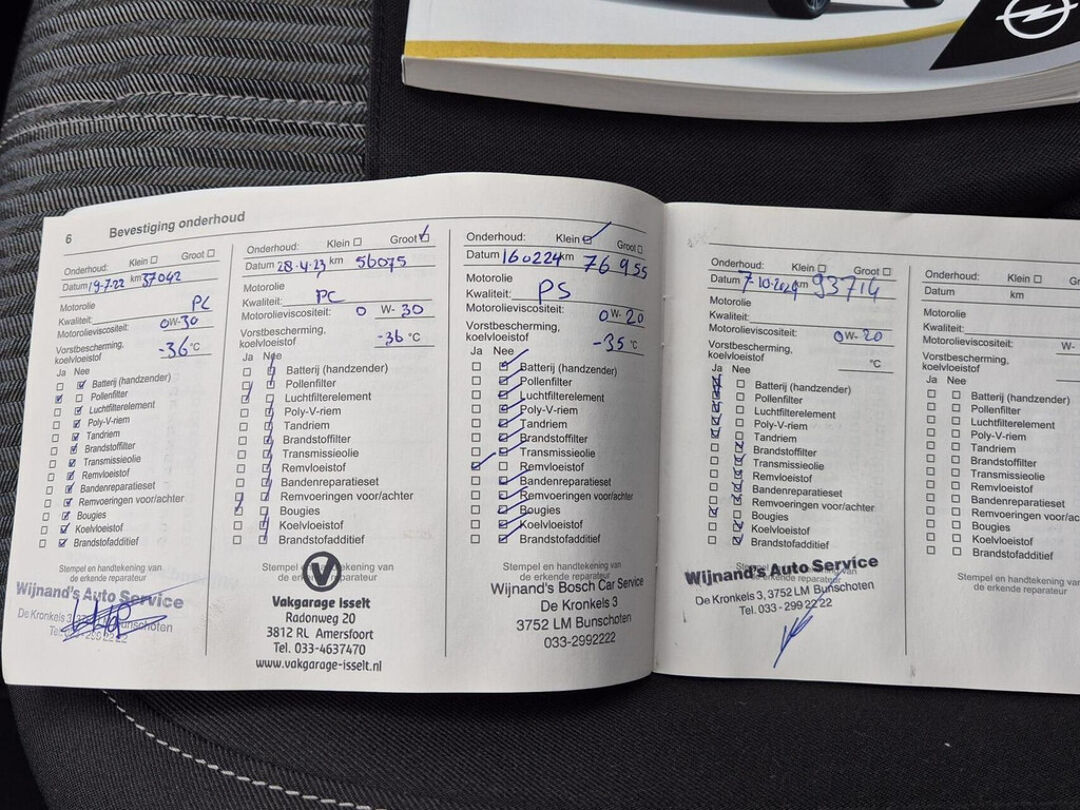 6 Bevestiging onderhoud
Onderhoud: Klein Groot
Datum 19-7-22 km 37042
Motorolie
Kwaliteit: PC
Motorolieviscositeit: 0W-30
Vorstbescherming,
koelvloeistof -36 °C
Ja Nee
Batterij (handzender)
Pollenfilter
Luchtfilterelement
Poly-V-riem
Tandriem
Brandstoffilter
Transmissieolie
Remvloeistof
Bandenreparatieset
Remvoeringen voor/achter
Bougies
Koelvloeistof
Brandstofadditief
Stempel en handtekening van
de erkende reparateur
Wijnand's Auto Service
De Kronkels 3, 3752 LM Bunschoten
Tel. 033 - 299 22 22
Onderhoud: Klein Groot
Datum 28-4-23 km 56075
Motorolie
Kwaliteit: PC
Motorolieviscositeit: 0 W- 30
Vorstbescherming,
koelvloeistof -36 °C
Ja Nee
Batterij (handzender)
Pollenfilter
Luchtfilterelement
Poly-V-riem
Tandriem
Brandstoffilter
Transmissieolie
Remvloeistof
Bandenreparatieset
Remvoeringen voor/achter
Bougies
Koelvloeistof
Brandstofadditief
Stempel en handtekening van
de erkende reparateur
Vakgarage Isselt
Radonweg 20
3812 RL Amersfoort
Tel. 033-4637470
www.vakgarage-isselt.nl
Onderhoud: Klein Groot
Datum 160224 km 76955
Motorolie
Kwaliteit: PS
Motorolieviscositeit: 0W- 20
Vorstbescherming,
koelvloeistof -35 °C
Ja Nee
Batterij (handzender)
Pollenfilter
Luchtfilterelement
Poly-V-riem
Tandriem
Brandstoffilter
Transmissieolie
Remvloeistof
Bandenreparatieset
Remvoeringen voor/achter
Bougies
Koelvloeistof
Brandstofadditief
Stempel en handtekening van
de erkende reparateur
Wijnand's Bosch Car Service
De Kronkels 3
3752 LM Bunschoten
033-2992222
Onderhoud: Klein Groot
Datum 7-10-2024 km 93714
Motorolie
Kwaliteit:
Motorolieviscositeit: 0W- 20
Vorstbescherming,
koelvloeistof °C
Ja Nee
Batterij (handzender)
Pollenfilter
Luchtfilterelement
Poly-V-riem
Tandriem
Brandstoffilter
Transmissieolie
Remvloeistof
Bandenreparatieset
Remvoeringen voor/achter
Bougies
Koelvloeistof
Brandstofadditief
Stempel en handtekening van
de erkende reparateur
Wijnand's Auto Service
De Kronkels 3, 3752 LM Bunschoten
Tel. 033 - 299 22 22
Onderhoud: Klein
Datum km
Motorolie
Kwaliteit:
Motorolieviscositeit: W-
Vorstbescherming,
koelvloeistof
Ja Nee
Batterij (handzender)
Pollenfilter
Luchtfilterelement
Poly-V-riem
Tandriem
Brandstoffilter
Transmissieolie
Remvloeistof
Bandenreparatieset
Remvoeringen voor/ac
Bougies
Koelvloeistof
Brandstofadditief
Stempel en handtekening van
de erkende reparateur